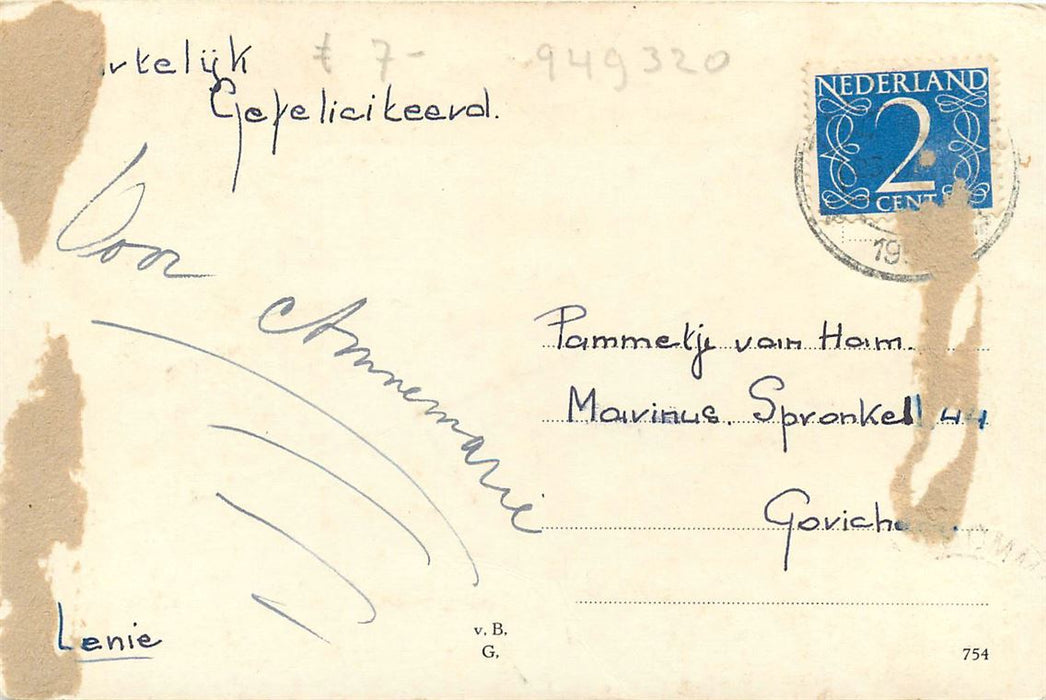 rtelijk
Gefeliciteerd.
7-
949320
NEDERLAND
2
CENT
19
Voor Annemarie
Pammetje van Ham.
Marinus. Spronkel 44
Gorich
Lenie
v. B.
G.
754